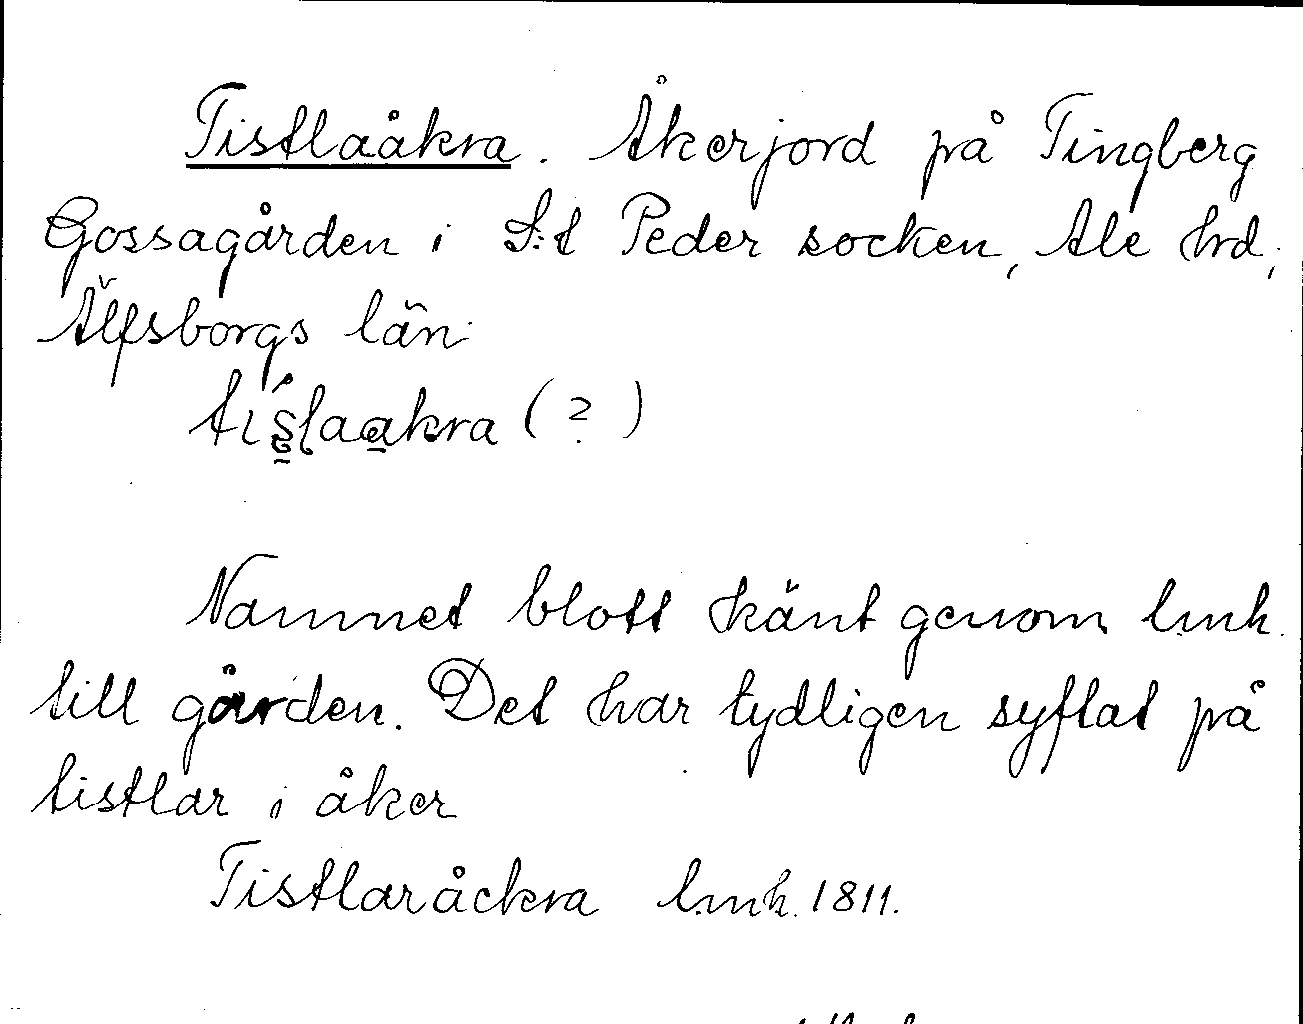 Tistlaåkra. Åkerjord på Tingberg
Gossagården i S:t Peder socken, Ale hrd,
Älfsborgs län
(?)
Namnet blott känt genom lmh.
till gården. Det har tydligen syftat på
tistlar i åker
Tistlaråckra lmh. 1811.